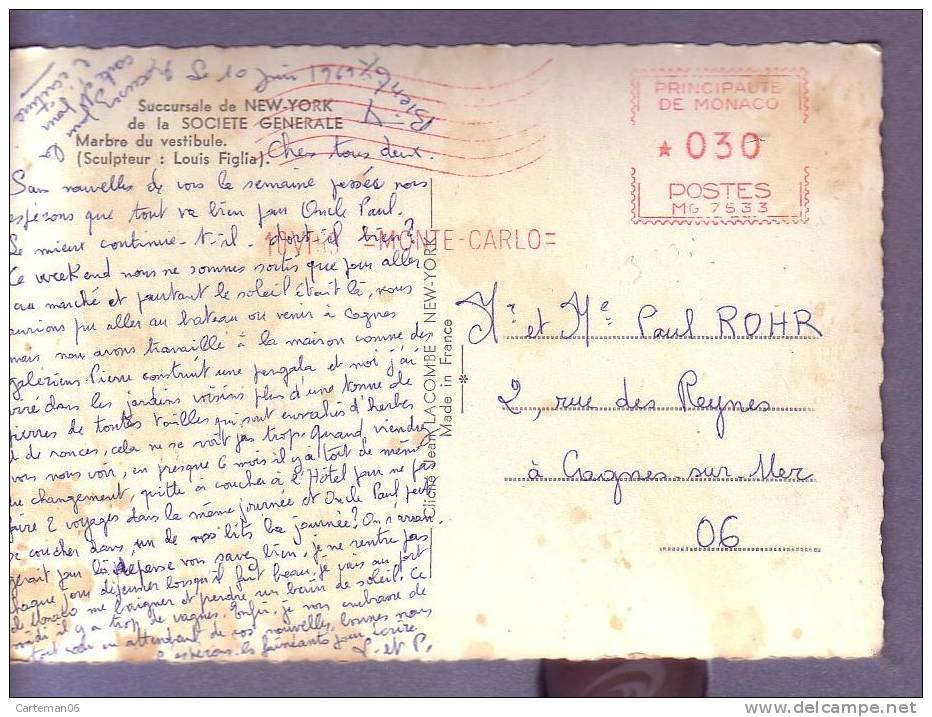 Le 10 Juin 1969
Succursale de NEW-YORK
de la SOCIETE GENERALE
Marbre du vestibule.
(Sculpteur : Louis Figlia).
Chers tous deux.
Sans nouvelles de vous la semaine passée nous
espérons que tout va bien pour Oncle Paul.
Le mieux continue-t-il - dort-il bien?
Ce weekend nous ne sommes sortis que pour aller
au marché et pourtant le soleil était là, nous
aurions pu aller au bateau ou venir à Cagnes
mais nous avons travaillé à la maison comme des
galériens. Pierre construit une pergola et moi j'ai
dans les jardins voisins plus d'une tonne de
pierres de toutes tailles qui sont envahies d'herbes
et de ronces, cela ne se voit pas trop. Quand viendrez
vous nous voir, en presque 6 mois il y a tout de même
du changement, quitte à coucher à l'Hôtel pour ne pas
faire 2 voyages dans la même journée et Oncle Paul peut
se coucher dans un de nos lits la journée? On s'arran
gerait pour la dépense vous savez bien, je ne rentre pas
chaque jour déjeuner lorsqu'il fait beau, je vais au port
de Monaco me baigner et prendre un bain de soleil. Ce
midi il y a trop de vagues. Enfin, je vous embrasse de
tout cœur en attendant de vos nouvelles, bonnes nous
espérons,
L. et P.
Bientôt
Cliché Jean LACOMBE NEW-YORK
Made in France
PRINCIPAUTE
DE MONACO
★ 030
POSTES
MG 7533
=MONTE-CARLO=
Mr. et Me Paul ROHR
2, rue des Peynes
à Cagnes-sur-Mer
06
Carteman06
delcampe.net